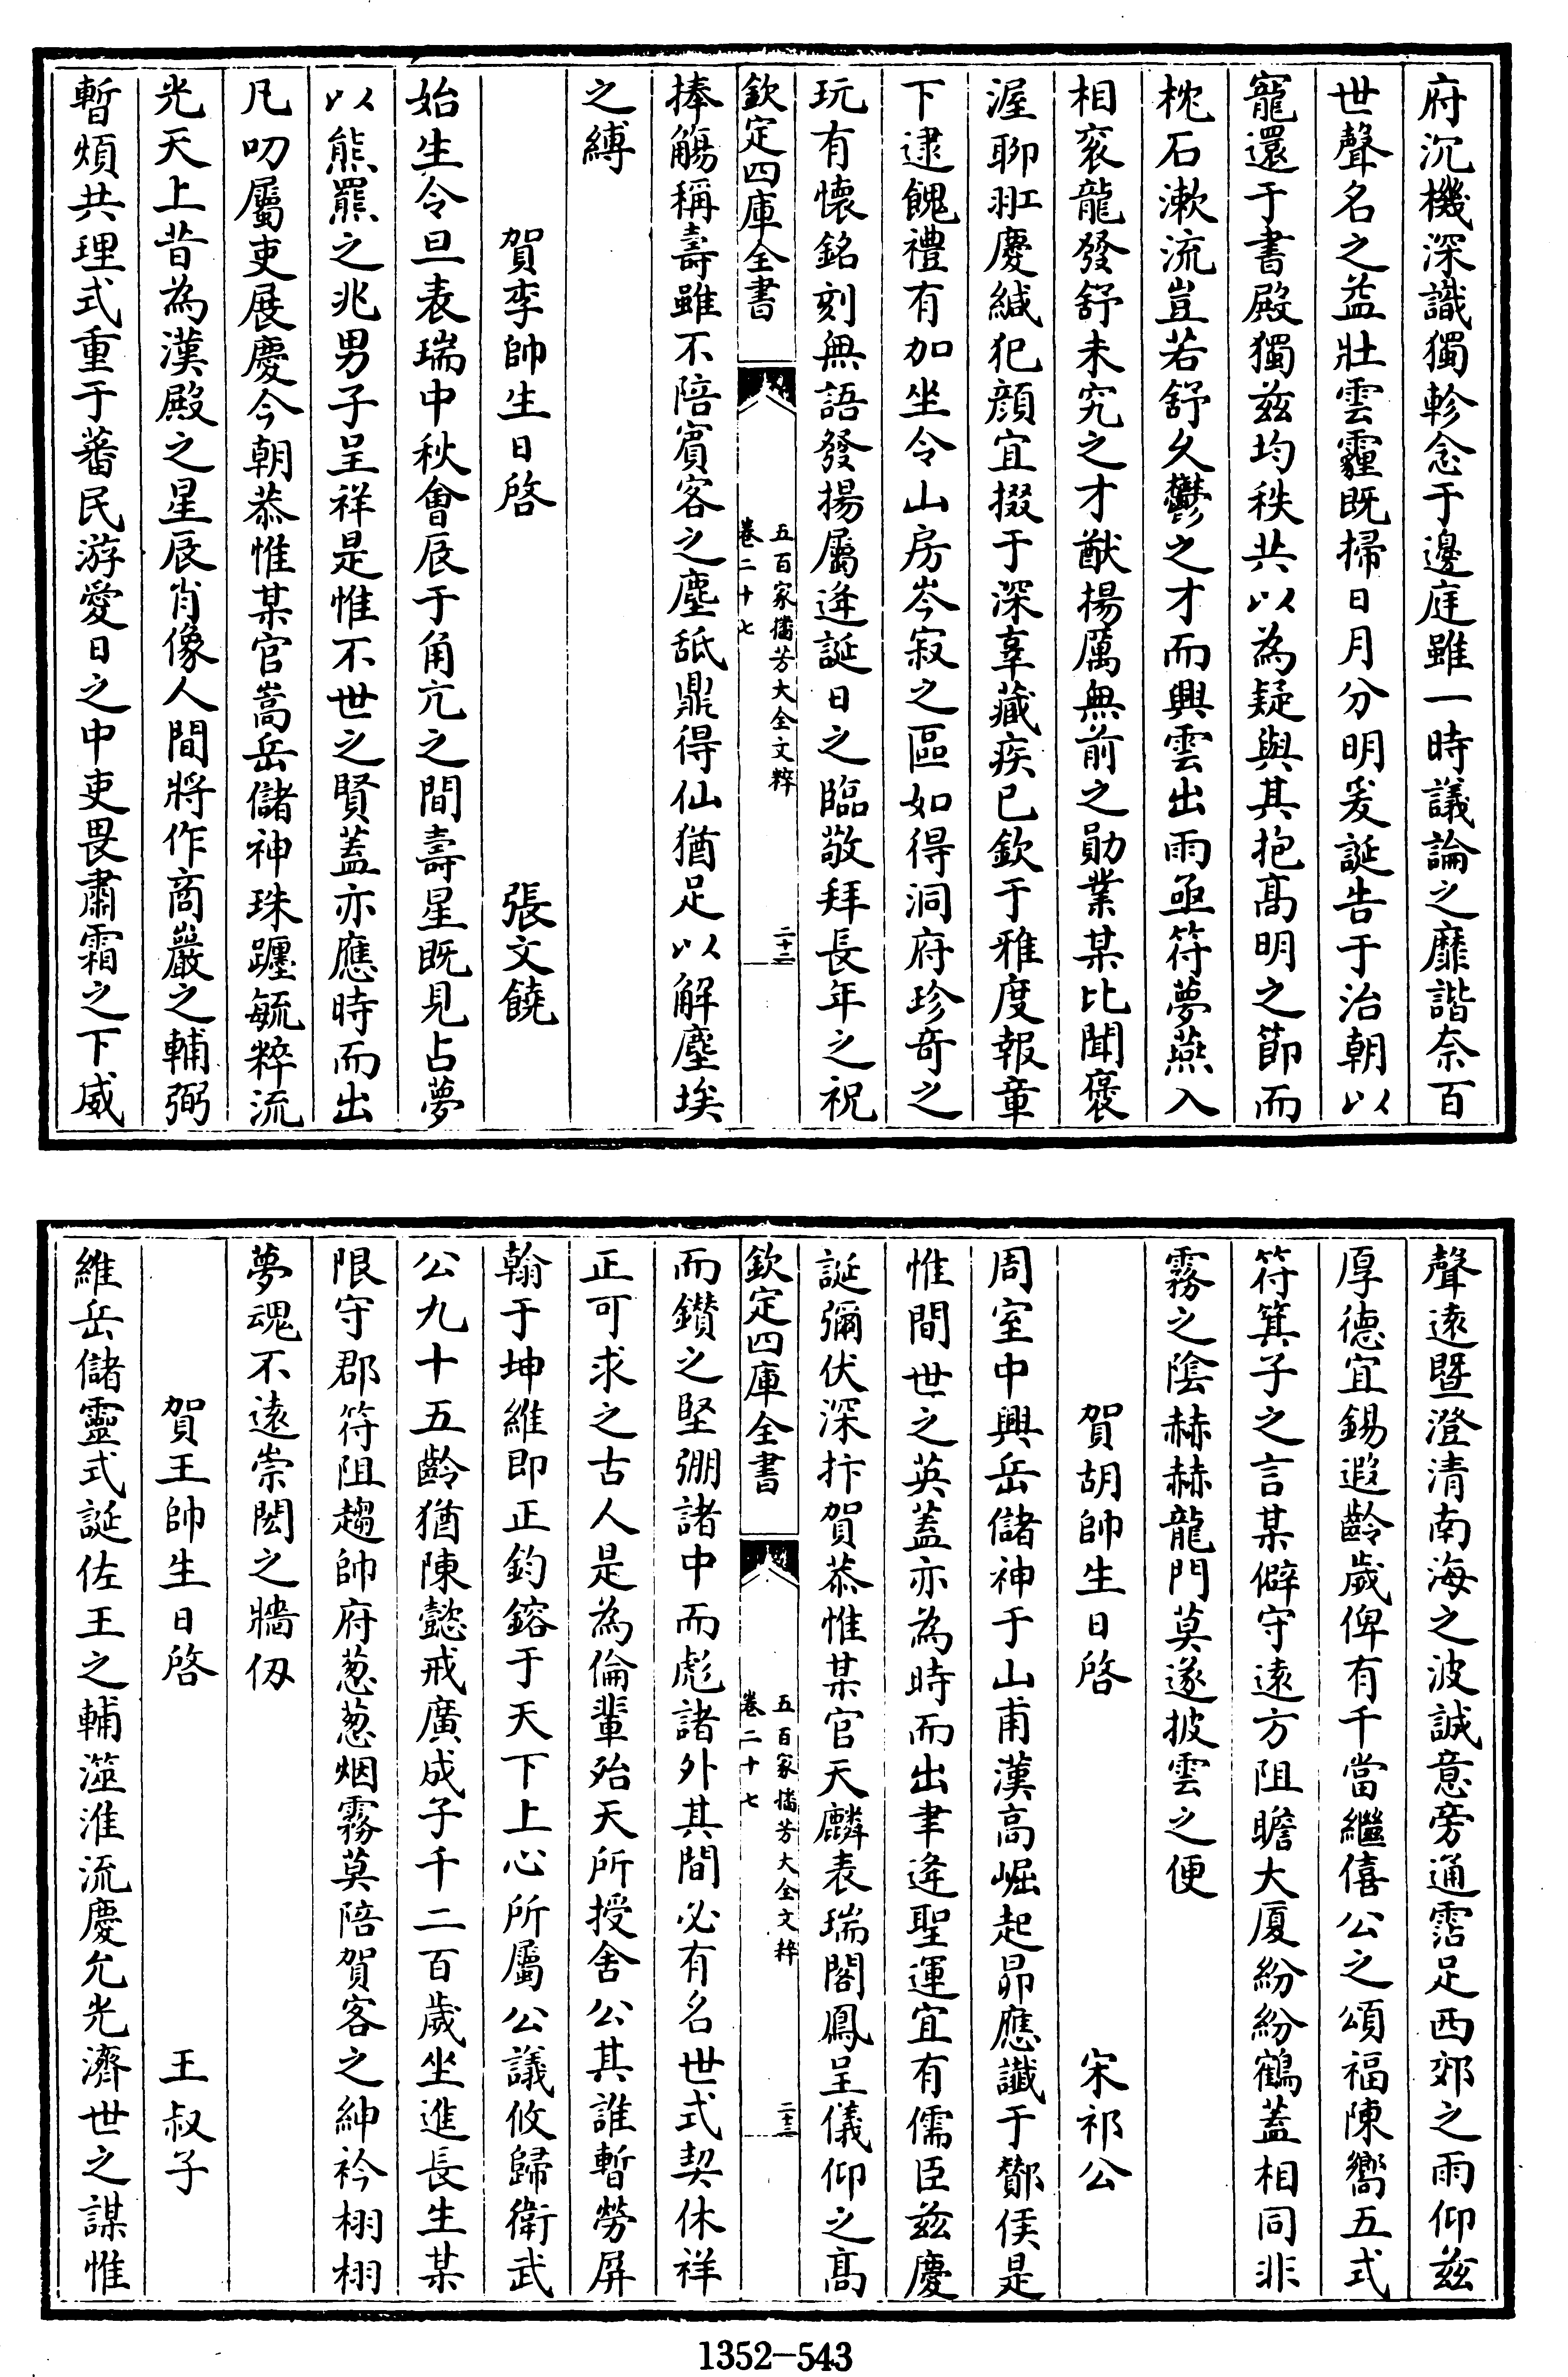 府沉機深識獨軫念于邊庭雖一時議論之靡諧奈百
世聲名之益壯雲霾既掃日月分明爰誕告于治朝以
寵還于書殿獨兹均秩共以為疑與其抱髙明之節而
枕石漱流豈若舒久鬱之才而興雲出雨亟符夢燕入
相衮龍發舒未究之才猷揚厲無前之勛業某比聞褒
渥聊瓨慶緘犯顔宜掇于深辜藏疾已欽于雅度報章
下逮餽禮有加坐令山房岑寂之區如得洞府珍奇之
玩有懐銘刻無語發揚屬逢誕日之臨敬拜長年之祝
欽定四庫全書
五百家播芳大全文粹
卷二十七
二十二
捧觴稱壽雖不陪賓客之塵舐鼎得仙猶足以解塵埃
之縛
賀李帥生日啓 張文饒
始生令旦表瑞中秋會辰于角亢之間壽星既見占夢
以熊羆之兆男子呈祥是惟不世之賢蓋亦應時而出
凡叨屬吏展慶今朝恭惟某官嵩岳儲神珠躔毓粹流
光天上昔為漢殿之星辰肖像人間將作商巖之輔弼
暫煩共理式重于蕃民游愛日之中吏畏肅霜之下威
聲遠暨澄清南海之波誠意旁通霑足西郊之雨仰兹
厚德宜錫遐齡歲俾有千當繼僖公之頌福陳嚮五式
符箕子之言某僻守遠方阻瞻大厦紛紛鶴蓋相同非
霧之陰赫赫龍門莫遂披雲之便
賀胡帥生日啓 宋祁公
周室中興岳儲神于山甫漢髙崛起昴應讖于酇侯是
惟間世之英蓋亦為時而出聿逢聖運宜有儒臣兹慶
誕彌伏深抃賀恭惟某官天麟表瑞閣鳳呈儀仰之髙
欽定四庫全書
五百家播芳大全文粹
卷二十七
二十三
而鑚之堅弸諸中而彪諸外其間必有名世式契休祥
正可求之古人是為倫輩殆天所授舍公其誰暫勞屏
翰于坤維即正鈞鎔于天下上心所屬公議攸歸衛武
公九十五齡猶陳懿戒廣成子千二百歲坐進長生某
限守郡符阻趨帥府葱葱烟霧莫陪賀客之紳衿栩栩
夢魂不遠崇閎之牆仭
賀王帥生日啓 王叔子
維岳儲靈式誕佐王之輔澨淮流慶允光濟世之謀惟
1352-543